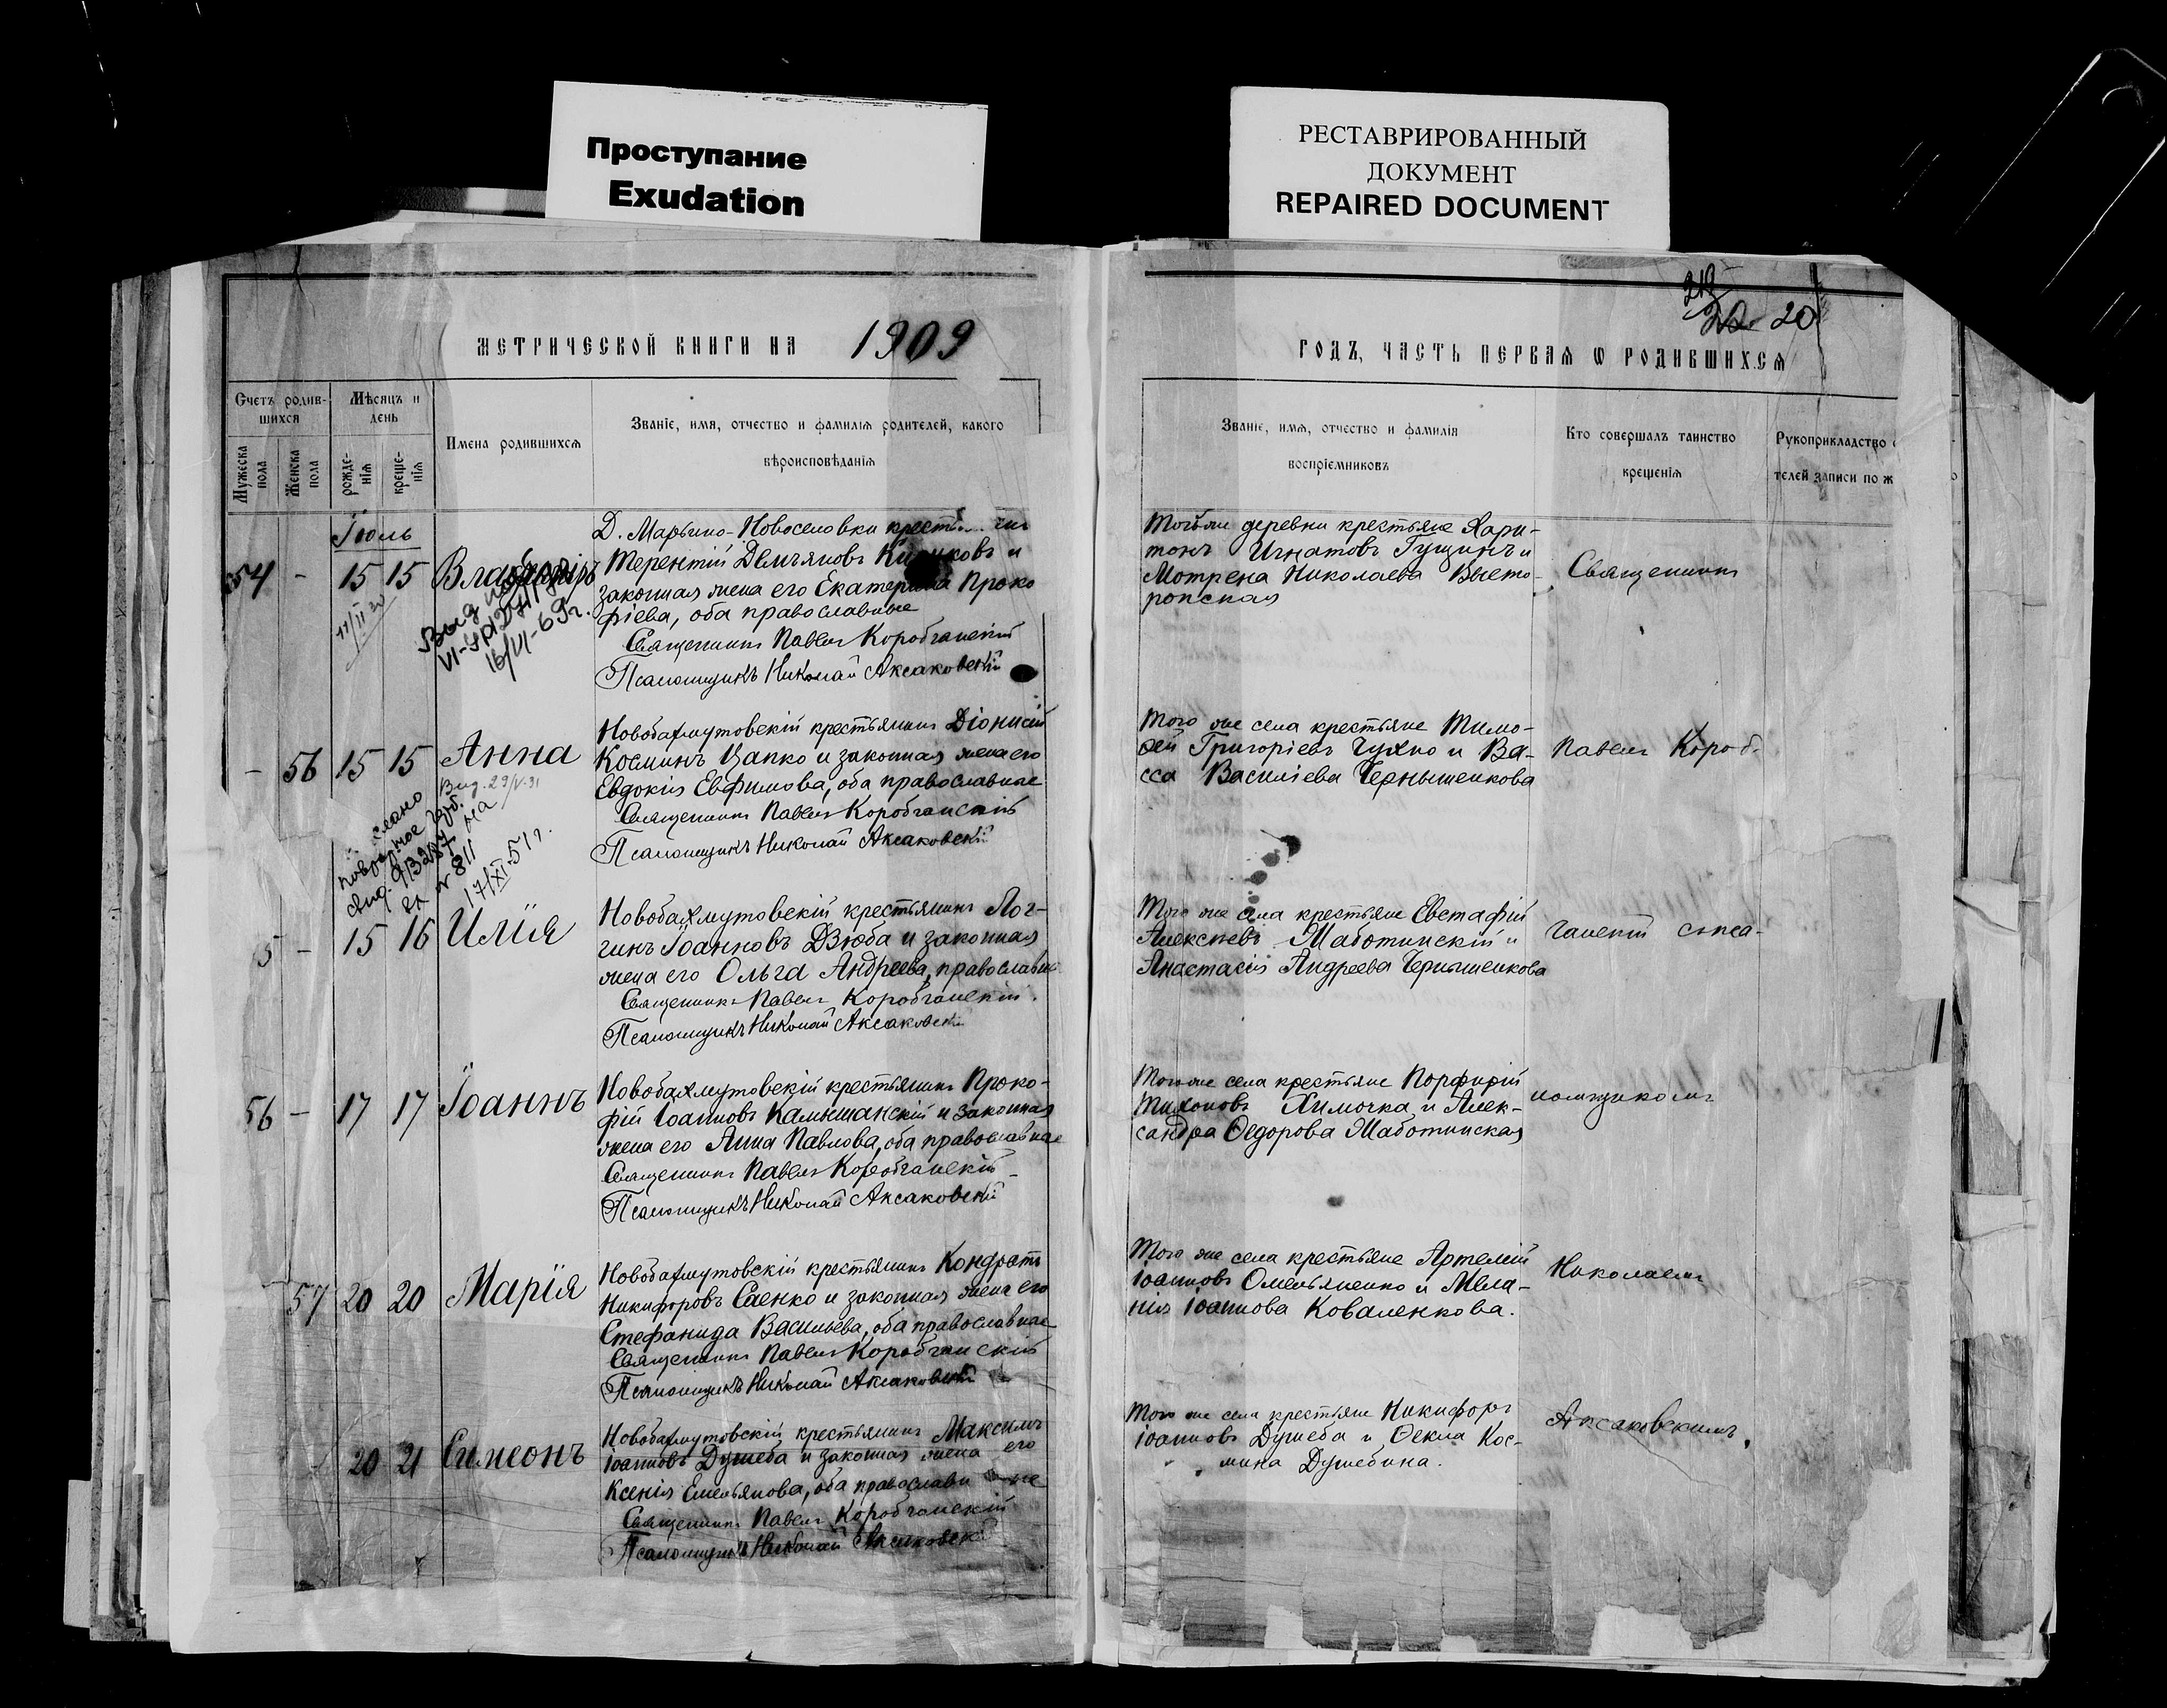 Проступание
Exudation
РЕСТАВРИРОВАННЫЙ
ДОКУМЕНТ
REPAIRED DOCUMENT
МЕТРИЧЕСКОЙ КНИГИ НА 1909
Счетъ родив-
шихся
Мѣсяцъ и
день
Мужеска
пола
Женска
пола
рожде-
нія
креще-
нія
Имена родившихся
Званіе, имя, отчество и фамилія родителей, какого
вѣроисповѣданія
Іюль
54 - 15 15 Владиміръ
16/VI-69г.
Д. Марьино-Новоселовки
Терентій Демьяновъ и
законная жена его Екатерина Проко
фіева, оба православные
Священникъ Павелъ Коробчанскій
Псаломщикъ Николай Аксаковскій
- 56 15 15 Анна
Выд. 29/V-31
17/XI-51г.
Новобахмутовскій крестьянинъ Діонисій
Косминъ Цапко и законная жена его
Евдокія Евфимова, оба православные
Священникъ Павелъ Коробчанскій
Псаломщикъ Николай Аксаковскій
5 - 15 16 Илія
Новобахмутовскій крестьянинъ Лог-
гинъ Іоанновъ Дзюба и законная
жена его Ольга Андреева, православные
Священникъ Павелъ Коробчанскій.
Псаломщикъ Николай Аксаковскій
56 - 17 17 Іоаннъ
Новобахмутовскій крестьянинъ Проко-
фій Іоанновъ Камышанскій и законная
жена его Анна Павлова, оба православные
Священникъ Павелъ Коробчанскій
Псаломщикъ Николай Аксаковскій
57 20 20 Марія
Новобахмутовскій крестьянинъ Кондратъ
Никифоровъ Саенко и законная жена его
Стефанида Васильева, оба православные
Священникъ Павелъ Коробчанскій
Псаломщикъ Николай Аксаковскій
20 21 Симеонъ
Новобахмутовскій крестьянинъ Максимъ
Іоанновъ Душеба и законная жена его
Ксенія Емельянова, оба православные
Священникъ Павелъ Коробчанскій
Псаломщикъ Николай Аксаковскій
20
ГОДЪ, ЧАСТЬ ПЕРВАЯ Ѡ РОДИВШИХСЯ
Званіе, имя, отчество и фамилія
воспріемниковъ
Кто совершалъ таинство
крещенія
Рукоприкладство
телей записи по ж
Той же деревни крестьяне Хари-
тонъ Игнатовъ Гущинъ и
Мотрена Николаева Высто-
ропская
Того же села крестьяне Тимо-
ѳей Григоріевъ Чухно и Ва-
сса Василіева Чернышенкова
Того же села крестьяне Евстафій
Алексѣевъ Жаботинскій и
Анастасія Андреева Чернышенкова
Того же села крестьяне Порфирій
Тихоновъ Химочка и Алек-
сандра Ѳедорова Жаботинская
Того же села крестьяне Артемій
Іоанновъ Омельяненко и Мела-
нія Іоаннова Коваленкова.
Того же села крестьяне Никифоръ
Іоанновъ Душеба и Ѳекла Кос-
мина Душебина.
Священникъ
Павелъ Короб-
чанскій съ пса-
ломщикомъ
Николаемъ
Аксаковскимъ.